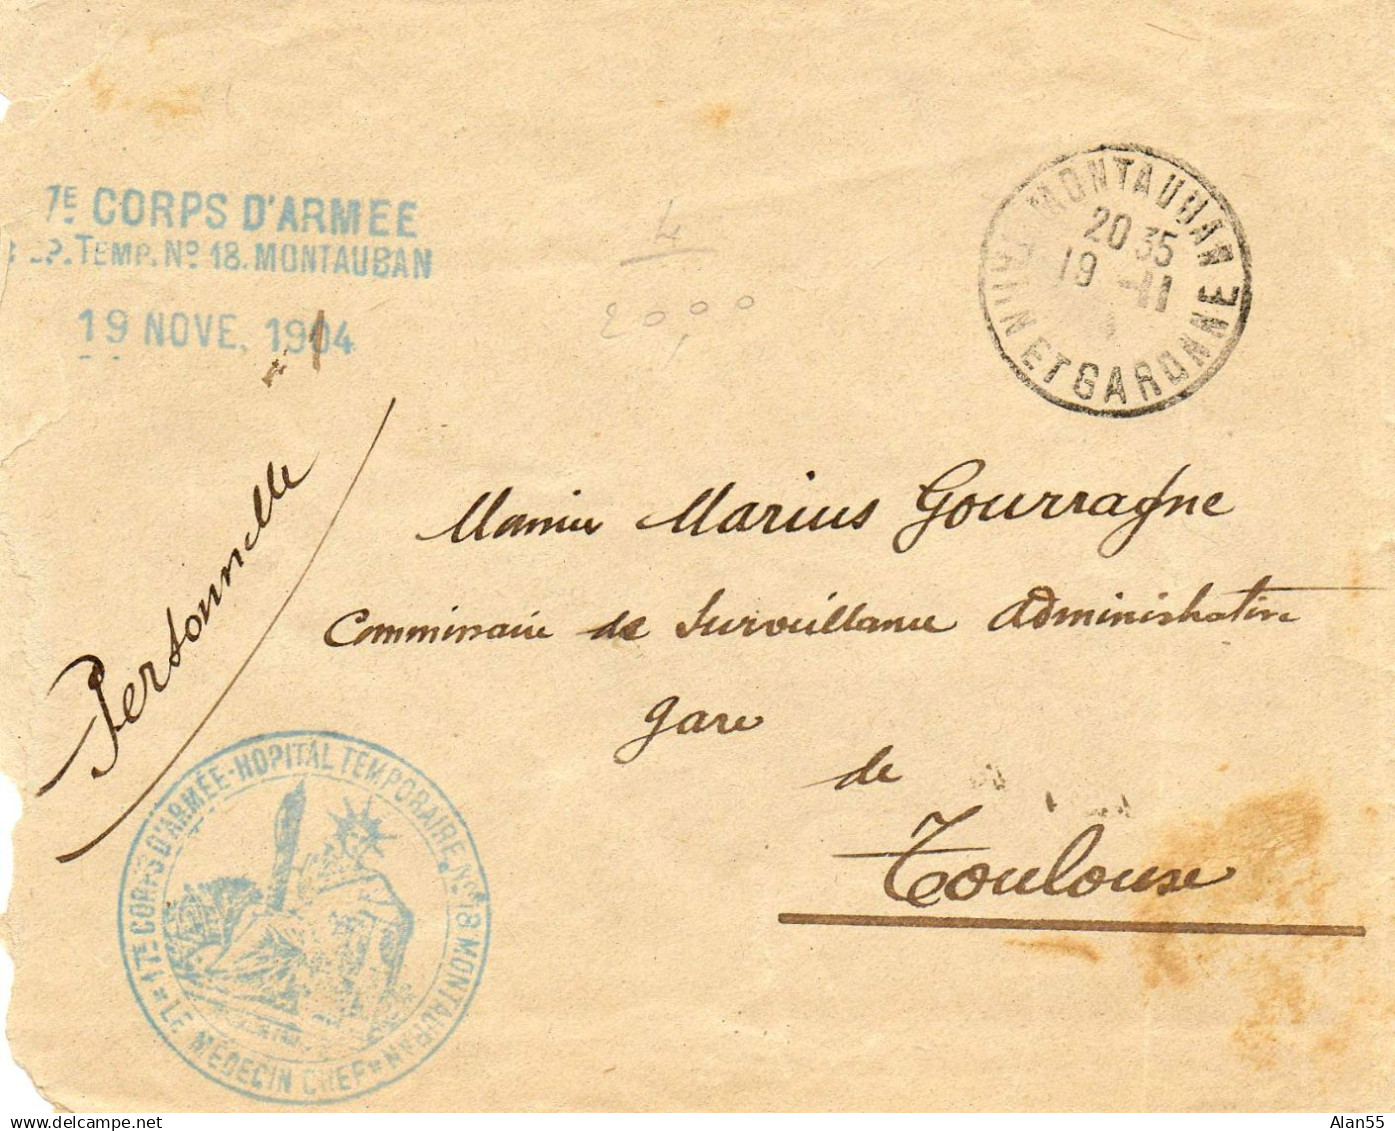 7E CORPS D'ARMEE
P. TEMP. No 18. MONTAUBAN
19 NOVE. 1904
MONTAUBAN
20 35
19 -11
TARN ET GARONNE
4
20,00
Personnelle
Marius Gourragne
Commissaire de Surveillance Administrative
gare
de
Toulouse
17E CORPS D'ARMÉE-HOPITAL TEMPORAIRE No 18 MONTAUBAN
* LE MÉDECIN CHEF *
Alan55